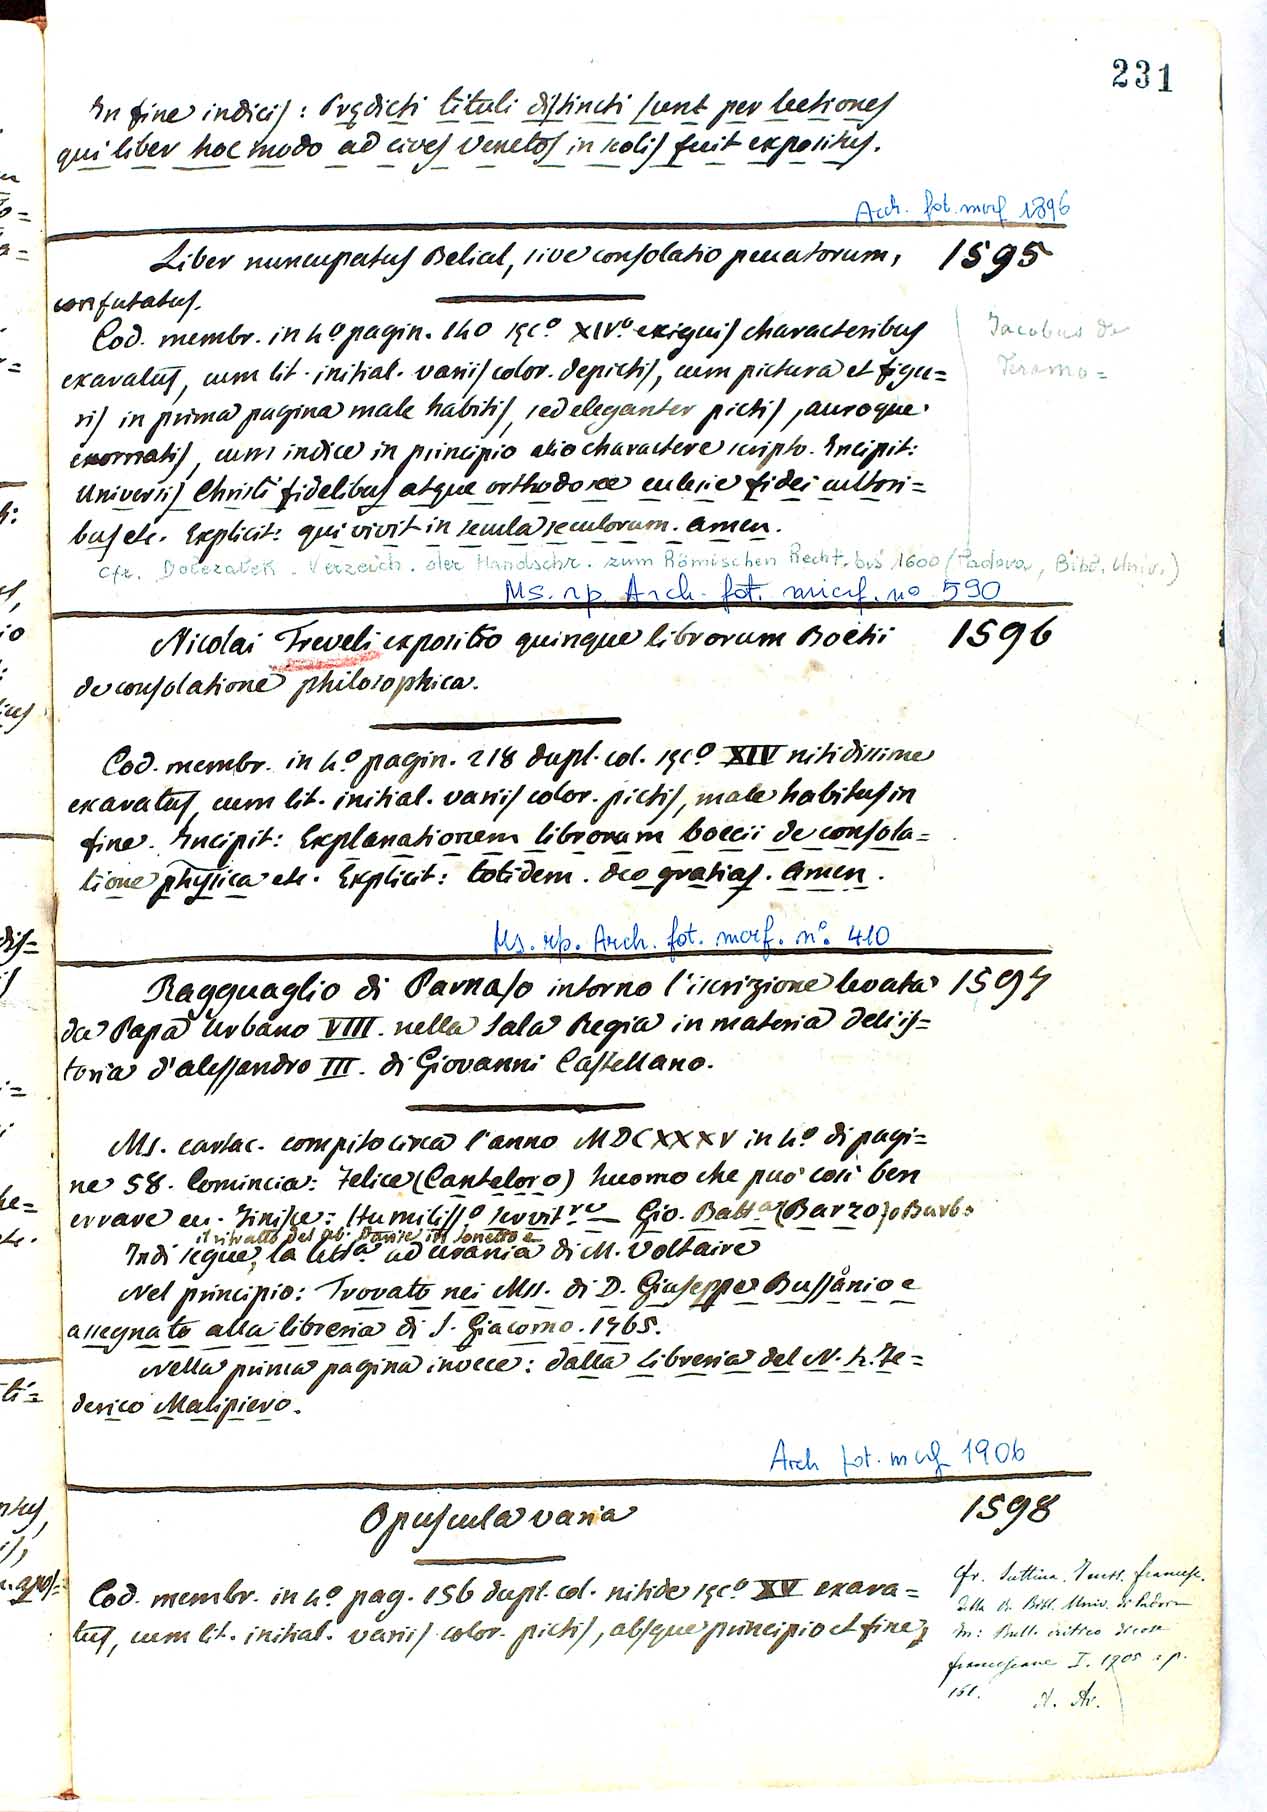 231
In fine indicis: Prędicti tituli distincti sunt per lectiones
qui liber hoc modo ad cives Venetos in scolis fuit expositus.
Arch. fot. mcrf 1896
Liber nuncupatus Belial, sive consolatio peccatorum, 1595
confutatus.
Cod. membr. in 4.º pagin. 140 sęc.º XIV.º exiguis characteribus
exaratus, cum lit. initial. variis color. depictis, cum pictura et figu=
ris in prima pagina male habitis, sed eleganter pictis, auroque
exornatis, cum indice in principio alio charactere scripto. Incipit:
Universis Christi fidelibus atque orthodoxe ecclesie fidei cultori=
bus etc. Explicit: qui vivit in secula seculorum. Amen.
Jacobus de
Teramo=
Cfr. Dolezalek. Verzeich. der Handschr. zum Römischen Recht. bis 1600 (Padova, Bibl. Univ.)
Ms. rp. Arch. fot. microf. nº 590
Nicolai Treveli expositio quinque librorum Boetii 1596
de consolatione philosophica.
Cod. membr. in 4.º pagin. 218 dupl. col. sęc.º XIV nitidissime
exaratus, cum lit. initial. variis color. pictis, male habitus in
fine. Incipit: Explanationem librorum boecii de consola=
tione physica etc. Explicit: totidem. deo gratias. Amen.
Ms. rp. Arch. fot. mcrf. nº. 410
Ragguaglio di Parnaso intorno l'iscrizione levata 1597
da Papa Urbano VIII. nella Sala Regia in materia dell'is=
toria d'Alessandro III. di Giovanni Castellano.
Ms. cartac. compito circa l'anno MDCXXXV in 4.º di pagi=
ne 58. Comincia: Felice (Canteloro) huomo che può così ben
errare ec. Finisce: Humiliss.º servit.re Gio. Batt.a (Barzo) o Barbo
il ritratto del ab. Dante in sonetto e
Indi segue, la lett.a ad Urania di M. Voltaire
Nel principio: Trovato nei Mss. di D. Giuseppe Bussånio e
assegnato alla libreria di S. Giacomo. 1765.
Nella prima pagina invece: dalla Libreria del N. H. Fe=
derico Malipiero.
Arch fot. mcrf 1906
Opuscula varia 1598
Cod. membr. in 4.º pag. 156 dupl. col. nitide sęc.º XV exara=
tus, cum lit. initial. variis color. pictis, absque principio et fine,
Cfr. Suttina, Mss. francesc.
della R. Bibl. Univ. di Padova
in: Bull. critico di cose
francescane I. 1905 : p.
161.